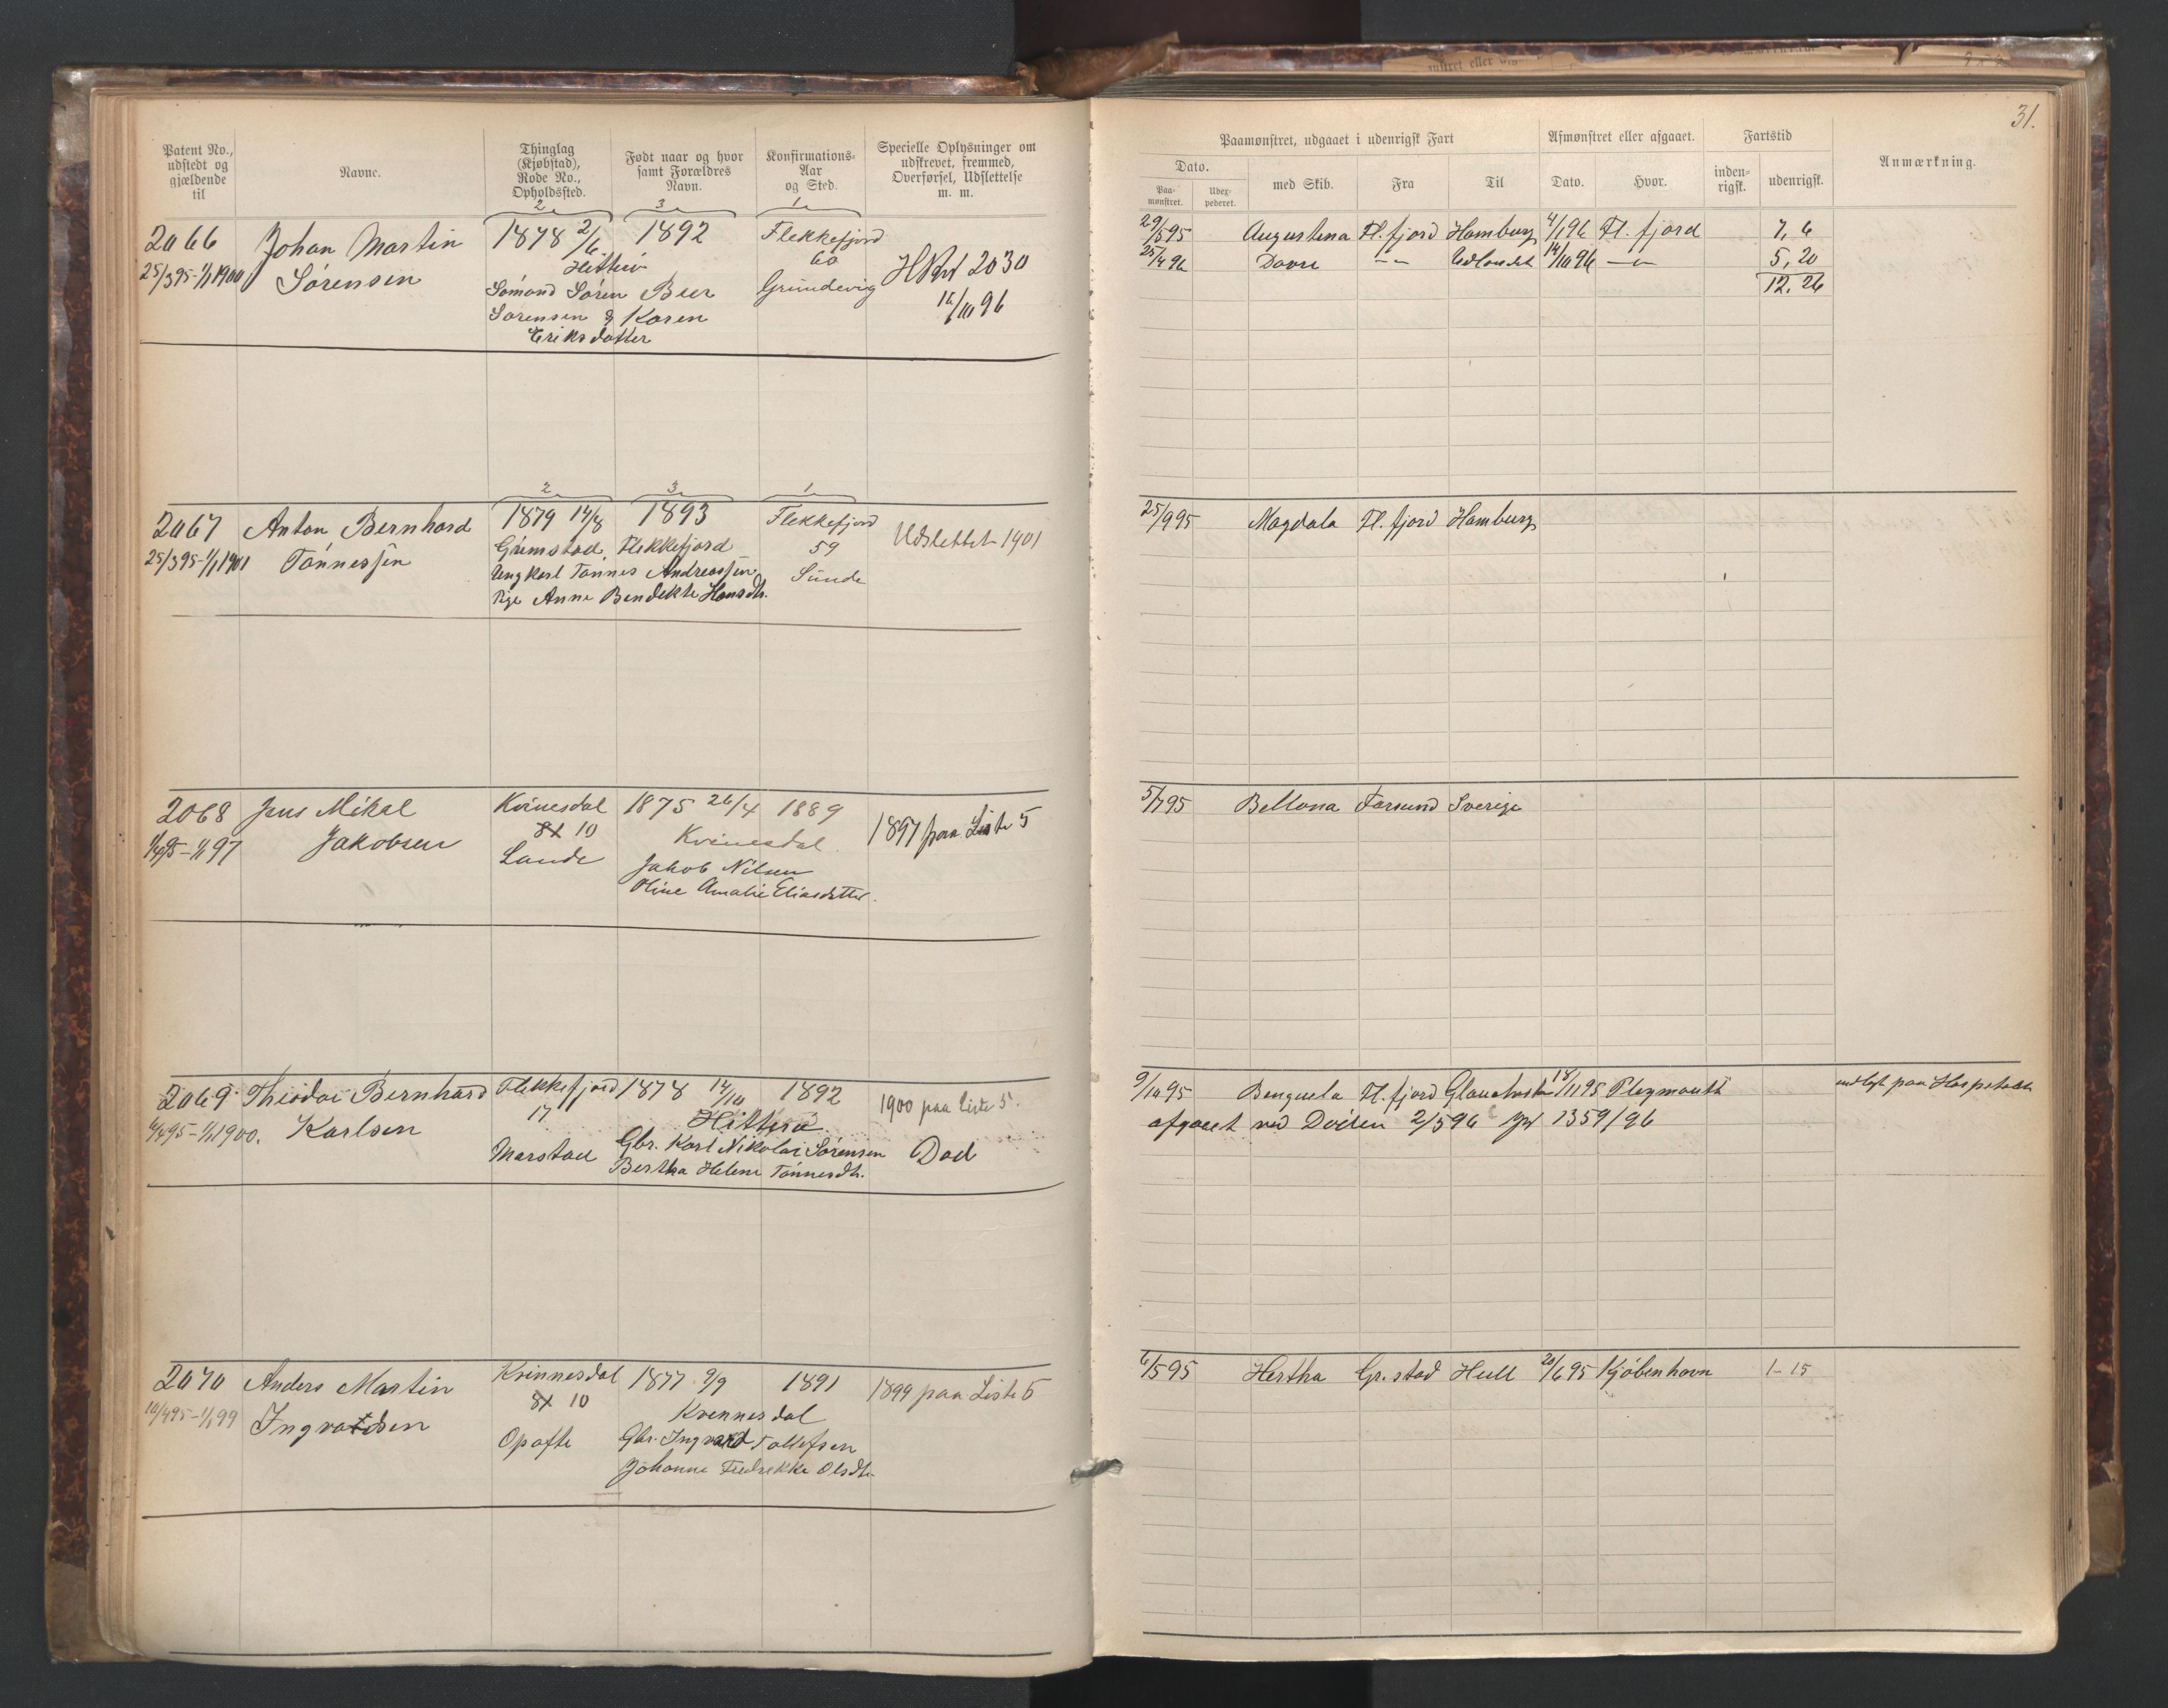 31.
Patent No., udstedt og gjældende til
Navne.
Thinglag (Kjøbstad), Rode No., Opholdssted.
Født naar og hvor samt Forældres Navn.
Konfirmations-Aar og Sted.
Specielle Oplysninger om udskrevet, fremmed, Overførsel, Udslettelse m. m.
Paamønstret, udgaaet i udenrigsk Fart
Afmønstret eller afgaaet.
Fartstid
Anmærkning.
Dato.
Paa-mønstret.
Uder-pederet.
med Skib.
Fra
Til
Dato.
Hvor.
inden-rigsk.
udenrigsk.
2 3 1
2066 Johan Martin 1878 2/6 1892 Flekkefjord
25/3 95-1/1 1900 Sørensen Hitterø 60
Sømand Søren Beer Grundevig
Sørensen & Karen
Eriksdatter
2030
16/10 96
29/8 95 Augustina Fl.fjord Hamburg 4/1 96 Fl.fjord 7, 6
25/4 96 Dovre -"- Udlandet 14/10 96 -"- 5, 20
12. 26
2 3 1
2067 Anton Bernhard 1879 14/8 1893 Flekkefjord Udslettet 1901
25/3 95-1/1 1901 Tønnessen Grimstad, Flekkefjord 59
Ungkarl Tønnes Andreassen, Sunde
Pige Anne Bendikte Hansdtr.
25/9 95 Magdala Fl.fjord Hamburg
2068 Jens Mikal Kvinesdal 1875 26/4 1889
1/4 95-1/1 97 Jakobsen 81 10 Kvinesdal 1897 paa Liste 5
Lande Jakob Nilsen
Oline Amalie Eliasdatter.
5/7 95 Bellona Farsund Sverige
2069 Theodor Bernhard Flekkefjord 1878 14/10 1892 1900 paa Liste 5.
4/4 95-1/1 1900. Karlsen 17 Hitterø
Marstad Gbr. Karl Nikolai Sørensen Død
Bertha Helene Tønnesdtr.
9/10 95 Benguela Fl.fjord 18/11 95 Pleymouth indlagt paa Hospitalet
afgaaet ved Døden 2/5 96 1359/96
2070 Anders Martin Kvinnesdal 1877 9/9 1891 1899 paa Liste 5
10/4 95-1/1 99 Ingvaldsen 81 10 Kvinnesdal
Opofte Gbr. Ingvald Tollefsen
Johanne Fredrikke Olsdtr.
6/5 95 Hertha Gr.stad Hull 20/6 95 Kjøbenhavn 1-15